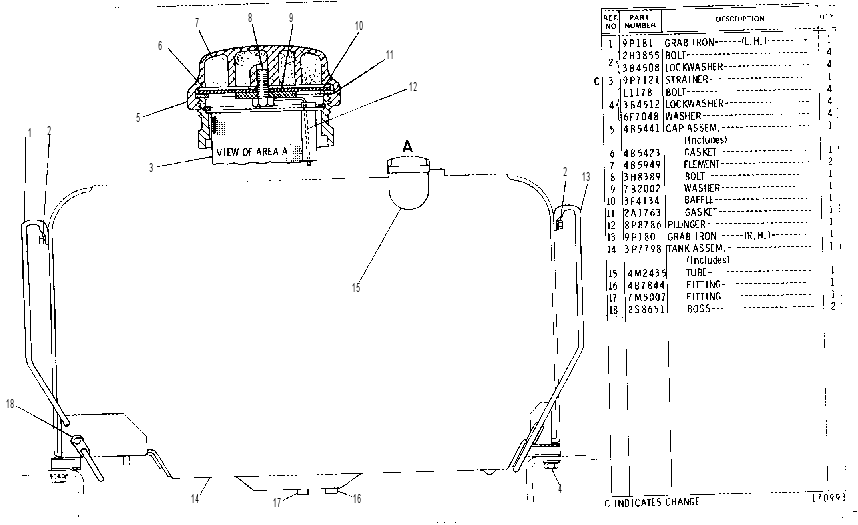 REF. NO PART NUMBER DESCRIPTION
1 9P181 GRAB IRON (L.H.) 1
2H3855 BOLT 4
2 3B4508 LOCKWASHER 4
C 3 9P7121 STRAINER 1
L1178 BOLT 4
4 3B4512 LOCKWASHER 4
6F7048 WASHER 4
5 4B5441 CAP ASSEM. 1
(Includes)
6 4B5423 GASKET 1
7 4B5949 ELEMENT 2
8 3H8389 BOLT 1
9 7B2002 WASHER 1
10 3F4134 BAFFLE 1
11 2A1763 GASKET 1
12 8P8786 PLUNGER 1
13 9P180 GRAB IRON (R.H.) 1
14 3P7798 TANK ASSEM. 1
(Includes)
15 4M2435 TUBE 1
16 4B7844 FITTING 1
17 7M5007 FITTING 1
18 2S8651 BOSS 2
C INDICATES CHANGE
170993
8 9
7
6 10
11
12
5
3
VIEW OF AREA A
1 2
A
2 13
15
18
14
17 16
4